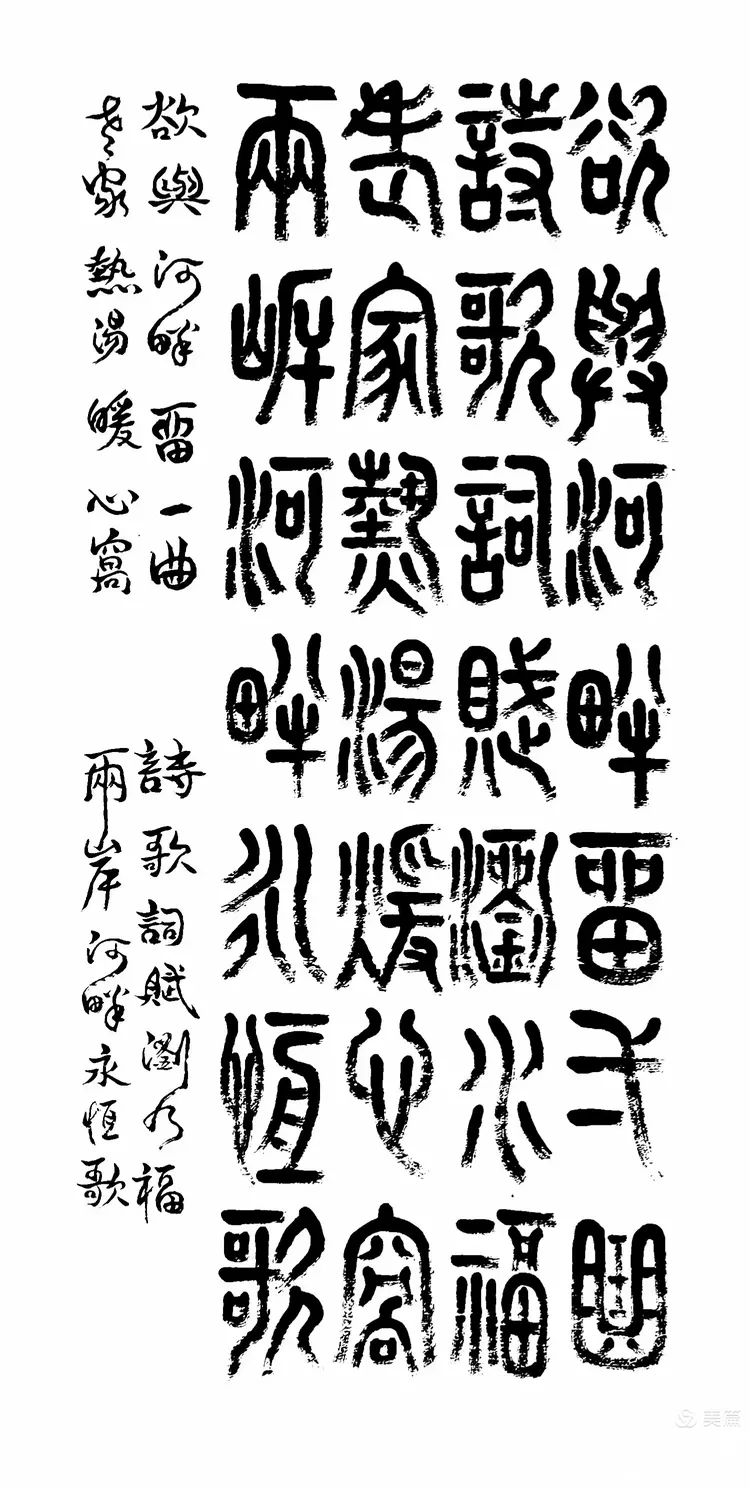 欲與河畔畱一曲
詩歌詞賦瀏水福
老家熱湯暖心窩
兩岸河畔永恒歌
欲與河畔畱一曲 詩歌詞賦瀏水福
老家熱湯暖心窩 兩岸河畔永恒歌
美篇